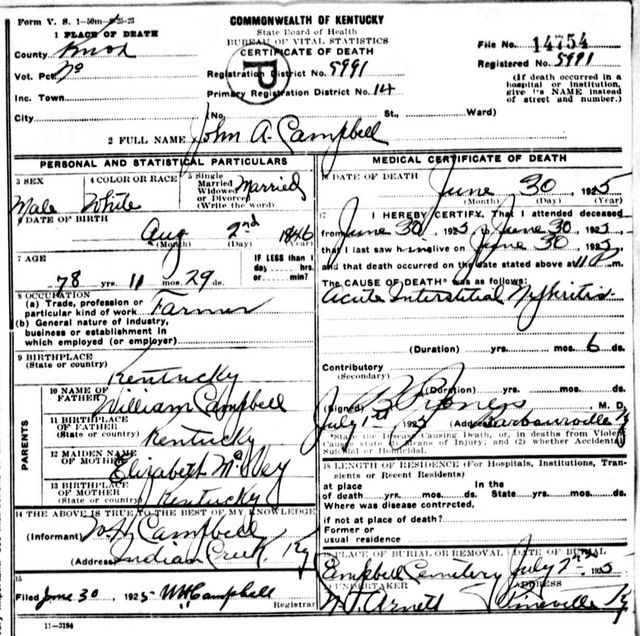 Form V. S. 1-50m
1 PLACE OF DEATH
COMMONWEALTH OF KENTUCKY
State Board of Health
BUREAU OF VITAL STATISTICS
CERTIFICATE OF DEATH
File No. 14754
Registered No. 5991
(If death occurred in a
hospital or institution,
give its NAME instead
of street and number.)
County Knox
Vot. Pct. No
Inc. Town
City
P
Registration District No. 5991
Primary Registration District No. 14
(No. St., Ward)
2 FULL NAME John A. Campbell
PERSONAL AND STATISTICAL PARTICULARS
3 SEX
Male
4 COLOR OR RACE
White
5 Single
Married
Widowed
or Divorced
(Write the word)
Married
6 DATE OF BIRTH
Aug 2nd 1846
(Month) (Day) (Year)
7 AGE
78 yrs. 11 mos. 29 ds.
IF LESS than 1
day hrs.
or min?
8 OCCUPATION
(a) Trade, profession or
particular kind of work Farmer
(b) General nature of industry,
business or establishment in
which employed (or employer)
9 BIRTHPLACE
(State or country)
Kentucky
PARENTS
10 NAME OF
FATHER
William Campbell
11 BIRTHPLACE
OF FATHER
(State or country)
Kentucky
12 MAIDEN NAME
OF MOTHER
Elizabeth
13 BIRTHPLACE
OF MOTHER
(State or country)
Kentucky
14 THE ABOVE IS TRUE TO THE BEST OF MY KNOWLEDGE
(Informant) W.H. Campbell
(Address) Indian Creek, Ky
15
Filed June 30, 1925 WH Campbell
Registrar
11-3184
MEDICAL CERTIFICATE OF DEATH
16 DATE OF DEATH
June 30 1925
(Month) (Day) (Year)
17 I HEREBY CERTIFY, That I attended deceased
from June 30, 1925 to June 30, 1925
that I last saw him alive on June 30, 1925,
and that death occurred on the date stated above at 11 P m.
The CAUSE OF DEATH* was as follows:
Acute Interstitial Nephritis
(Duration) yrs. mos. 6 ds.
Contributory
(Secondary)
(Duration) yrs. mos. ds.
(Signed) M. D.
July 1st 1925 (Address) Barbourville Ky
*State the Disease Causing Death, or, in deaths from Violent
Causes state (1) Means of Injury; and (2) whether Accidental,
Suicidal or Homicidal.
18 LENGTH OF RESIDENCE (For Hospitals, Institutions, Tran-
sients or Recent Residents)
at place
of death yrs. mos. ds.
In the
State yrs. mos. ds.
Where was disease contracted,
if not at place of death?
Former or
usual residence
19 PLACE OF BURIAL OR REMOVAL
Campbell Cemetery
DATE OF BURIAL
July 2nd 1925
20 UNDERTAKER
Arnett
ADDRESS
Pineville Ky.